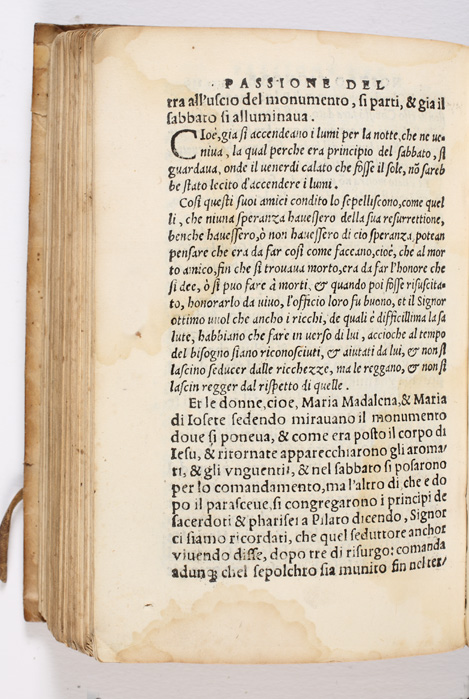 PASSIONE DEL
tra all'uscio del monumento, si parti, & gia il
sabbato si alluminaua.
CIoè, gia si accendeano i lumi per la notte, che ne ue-
niua, la qual perche era principio del sabbato, si
guardaua, onde il uenerdi calato che fosse il sole, nō sareb
be stato lecito d'accendere i lumi.
Così questi suoi amici condito lo sepelliscono, come quel
li, che niuna speranza hauessero della sua resurrettione,
benche hauessero, ò non hauessero di cio speranza, potean
pensare che era da far così come faccano, cioè, che al mor
to amico, fin che si trouaua morto, era da far l'honore che
si dee, ò si puo fare à morti, & quando poi fosse risuscita-
to, honorarlo da uiuo, l'officio loro fu buono, et il Signor
ottimo uuol che ancho i ricchi, de quali è difficillima la sa
lute, habbiano che fare in uerso di lui, accioche al tempo
del bisogno siano riconosciuti, & aiutati da lui, & non si
lascino seducer dalle ricchezze, ma le reggano, & non si
lascin regger dal rispetto di quelle.
Et le donne, cioe, Maria Madalena, & Maria
di Iosete sedendo mirauano il monumento
doue si poneua, & come era posto il corpo di
Iesu, & ritornate apparecchiarono gli aroma-
ti, & gli vnguenti, & nel sabbato si posarono
per lo comandamento, ma l'altro di, che e do
po il parasceue, si congregarono i principi de
sacerdoti & pharisei a Pilato dicendo, Signor
ci siamo ricordati, che quel seduttore anchor
viuendo disse, dopo tre di risurgo: comanda
adunq; chel sepolchro sia munito fin nel ter-